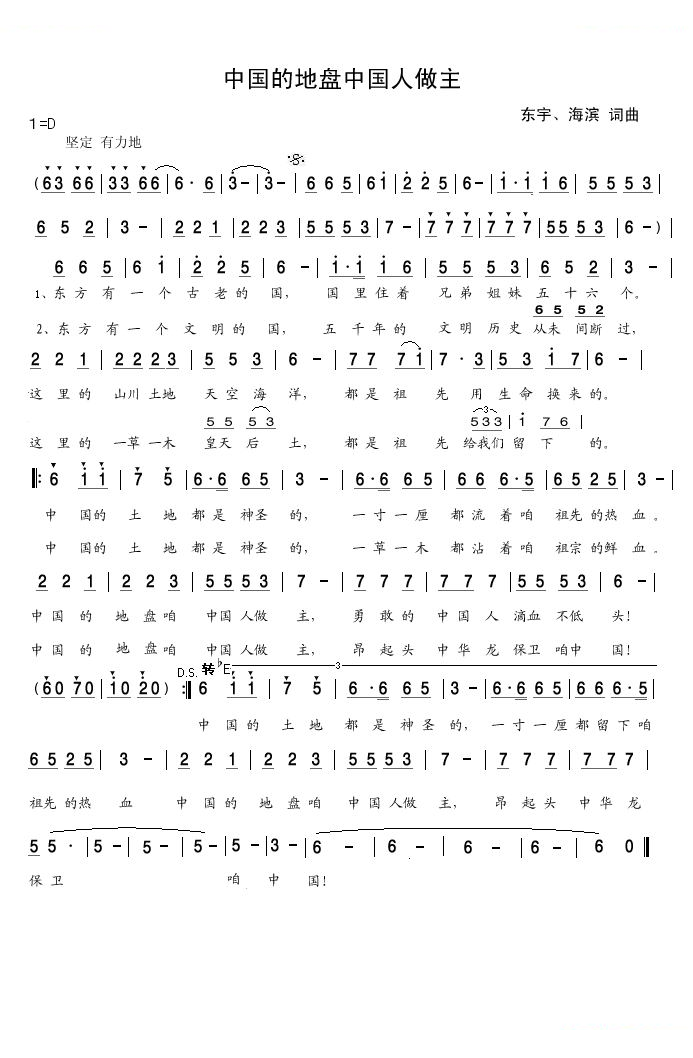 中国的地盘中国人做主
东宇、海滨 词曲
1=D
坚定 有力地
(63 66|33 66|6· 6|3-|3-|6 6 5|6 1|2 2 5|6-|1·1 1 6|5 5 5 3|
6 5 2|3 -|2 2 1|2 2 3|5 5 5 3|7 -|7 7 7|7 7 7|55 5 3|6 -)|
6 6 5|6 1|2 2 5|6 -|1·1 1 6|5 5 5 3|6 5 2|3 -|
1、东方 有 一 个 古 老 的 国, 国 里 住 着 兄 弟 姐 妹 五 十 六 个。
6 5 5 2
2、东 方 有 一 个 文 明 的 国, 五 千 年 的 文 明 历 史 从未 间断 过,
2 2 1|2 2 2 3|5 5 3|6 -|7 7 7 1|7 - 3|5 3 1 7|6 -|
这 里 的 山川 土地 天 空 海 洋, 都 是 祖 先 用 生 命 换 来 的。
5 5 5 3 3 533|1 7 6|
这 里 的 一草 一木 皇天 后 土, 都 是 祖 先 给我们 留 下 的。
‖:6 1 1|7 5|6·6 6 5|3 -|6·6 6 5|6 6 6·5|6 5 2 5|3 -|
中 国的 土 地 都 是 神圣 的, 一 寸 一 厘 都 流 着 咱 祖先 的热 血。
中 国的 土 地 都 是 神圣 的, 一 草 一 木 都 沾 着 咱 祖宗 的鲜 血。
2 2 1|2 2 3|5 5 5 3|7 -|7 7 7|7 7 7|5 5 5 3|6 -|
中 国 的 地 盘 咱 中国 人做 主, 勇 敢 的 中 国 人 滴血 不低 头!
中 国 的 地 盘 咱 中国 人做 主, 昂 起 头 中 华 龙 保卫 咱中 国!
D.S. 转♭E 3
(60 70|10 20):‖6 1 1|7 5|6·6 6 5|3 -|6·6 6 5|6 6 6·5|
中 国 的 土 地 都 是 神 圣 的, 一 寸 一 厘 都 留 下 咱
6 5 2 5|3 -|2 2 1|2 2 3|5 5 5 3|7 -|7 7 7|7 7 7|
祖先 的热 血 中 国 的 地 盘 咱 中 国 人做 主, 昂 起 头 中 华 龙
5 5 ·|5 -|5 -|5 -|5 - 5|3 -|6 -|6 -|6 -|6 -|6 0‖
保 卫 咱 中 国!